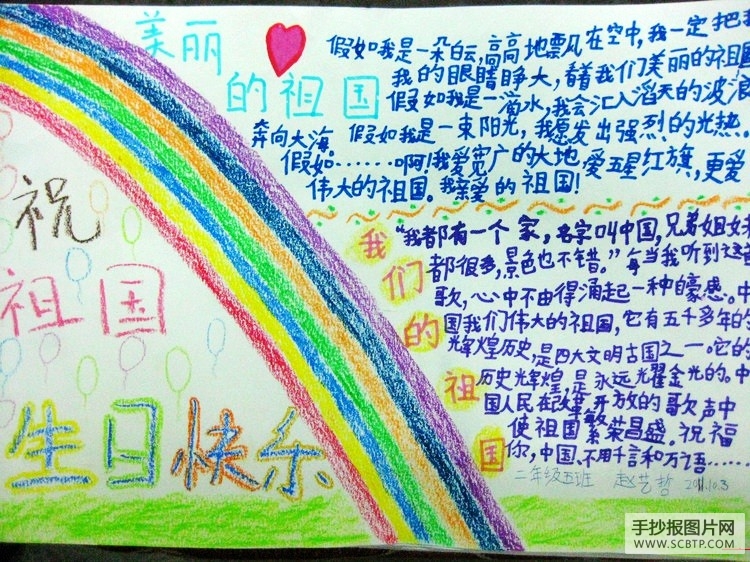 美丽
的祖国
假如我是一朵白云,高高地飘在空中,我一定把
我的眼睛睁大,看着我们美丽的祖国
假如我是一滴水,我会汇入滔天的波浪
奔向大海 假如我是一束阳光,我愿发出强烈的光热。
假如……啊!我爱宽广的大地 爱五星红旗,更爱
伟大的祖国。我亲爱的祖国!
祝
祖国
生日快乐
我们的祖国
“我都有一个家,名字叫中国,兄弟姐妹
都很多,景色也不错。”每当我听到这首
歌,心中不由得涌起一种自豪感。中
国我们伟大的祖国,它有五千多年的
辉煌历史,是四大文明古国之一。它的
历史辉煌,是永远光耀金光的。中
国人民在改革开放的歌声中
使祖国繁荣昌盛。祝福
你,中国,不用千言和万语……
二年级五班 赵艺哲 2011.10.3
手抄报图片网
WWW.SCBTP.COM